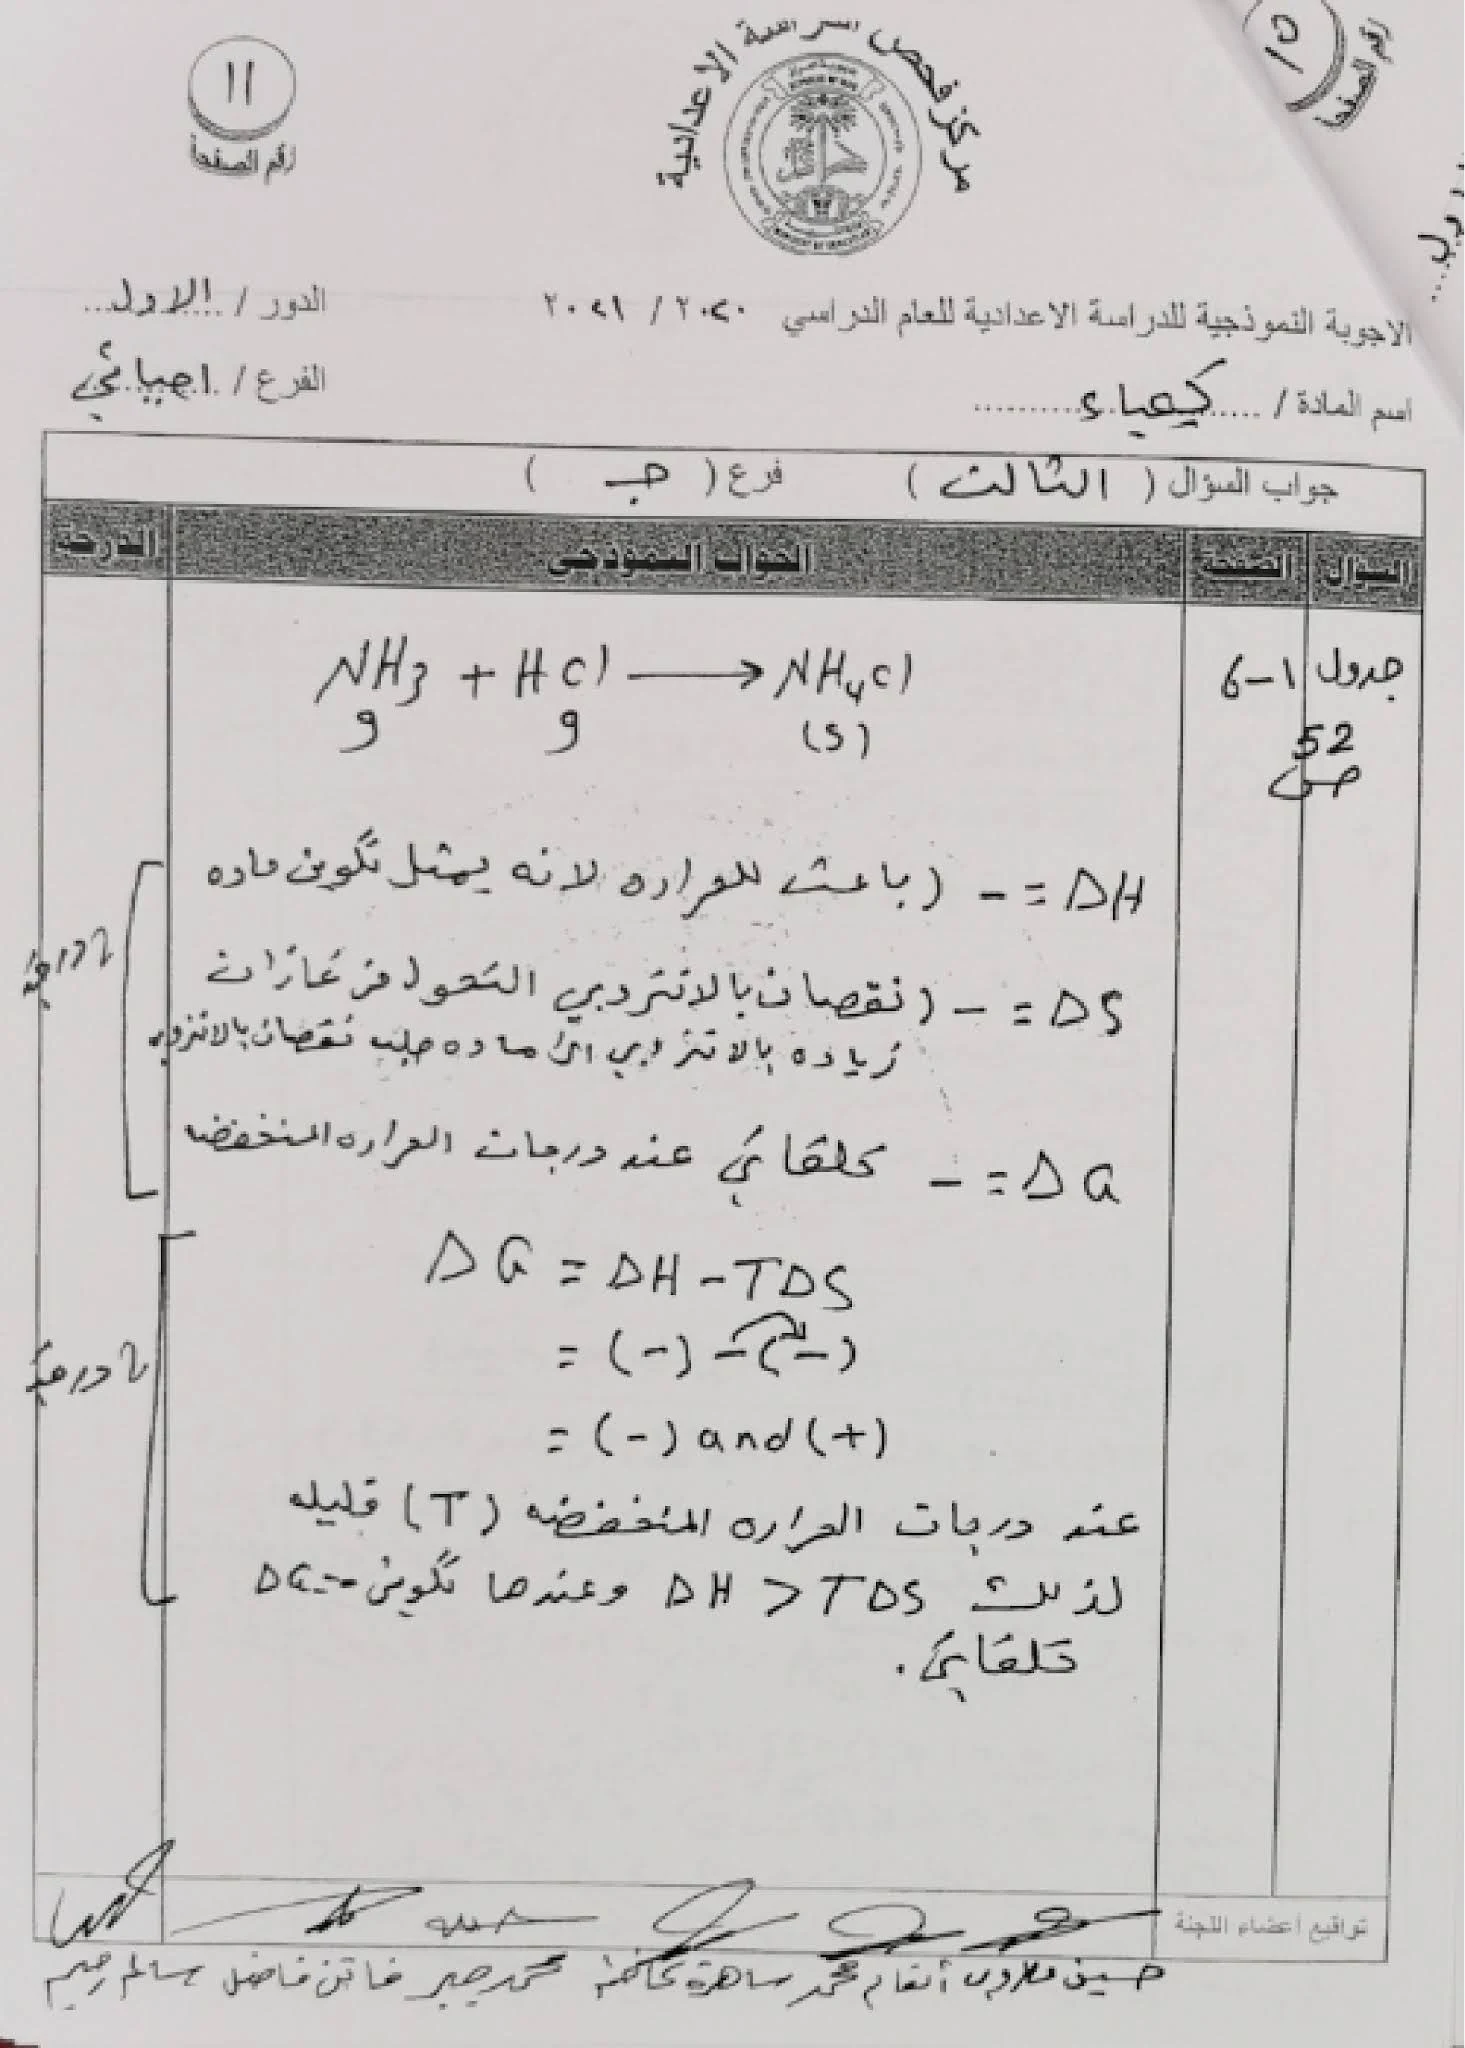 رقم الصفحة
١٥
١١
رقم الصفحة
مركز فحص الاعدادية
الاجوبة النموذجية للدراسة الاعدادية للعام الدراسي ٢٠٢٠ / ٢٠٢١
الدور / الاول
اسم المادة / كيمياء
الفرع / احيائي
جواب السؤال ( الثالث ) فرع ( جـ )
السؤال الصفحة الجواب النموذجي الدرجة
جدول 1-6
52
ص
NH3 + HCl → NH4Cl
g g (s)
ΔH = - ( باعث للحراره لانه يمثل تكوين ماده
ΔS = - ( نقصان بالانتروبي التحول من غازات
زياده بالانتروبي الى ماده صلبه نقصان بالانتروبي
ΔG = - تلقائي عند درجات الحراره المنخفضه
٢ درجة
ΔG = ΔH - TΔS
= (-) - (-)
= (-) and (+)
عند درجات الحراره المنخفضه (T) قليله
لذلك ΔH > TΔS وعندها تكون ΔG = -
تلقائي .
٢ درجة
تواقيع أعضاء اللجنة
حسين أنغام محمد ساهرة كاظم محمد جبر فاتن فاضل سالم رحيم